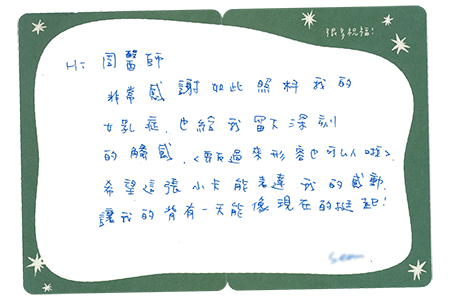 很多祝福!
Hi 周醫師
非常感謝如此照料我的
女乳症，也給我留下深刻
的觸感.<反過來形容也可以啦>.
希望這張小卡能表達我的感動.
讓我的背有一天能像現在的挺起!